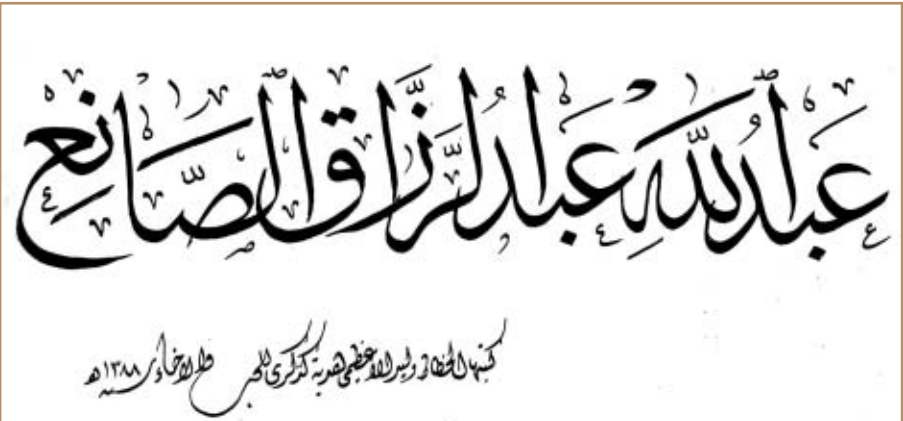 عبد الله عبد الرزاق الصانع
كتبها الخطاط وليد الاعظمي هدية كذكرى للحب والاخاء سنة ١٣٨٨هـ